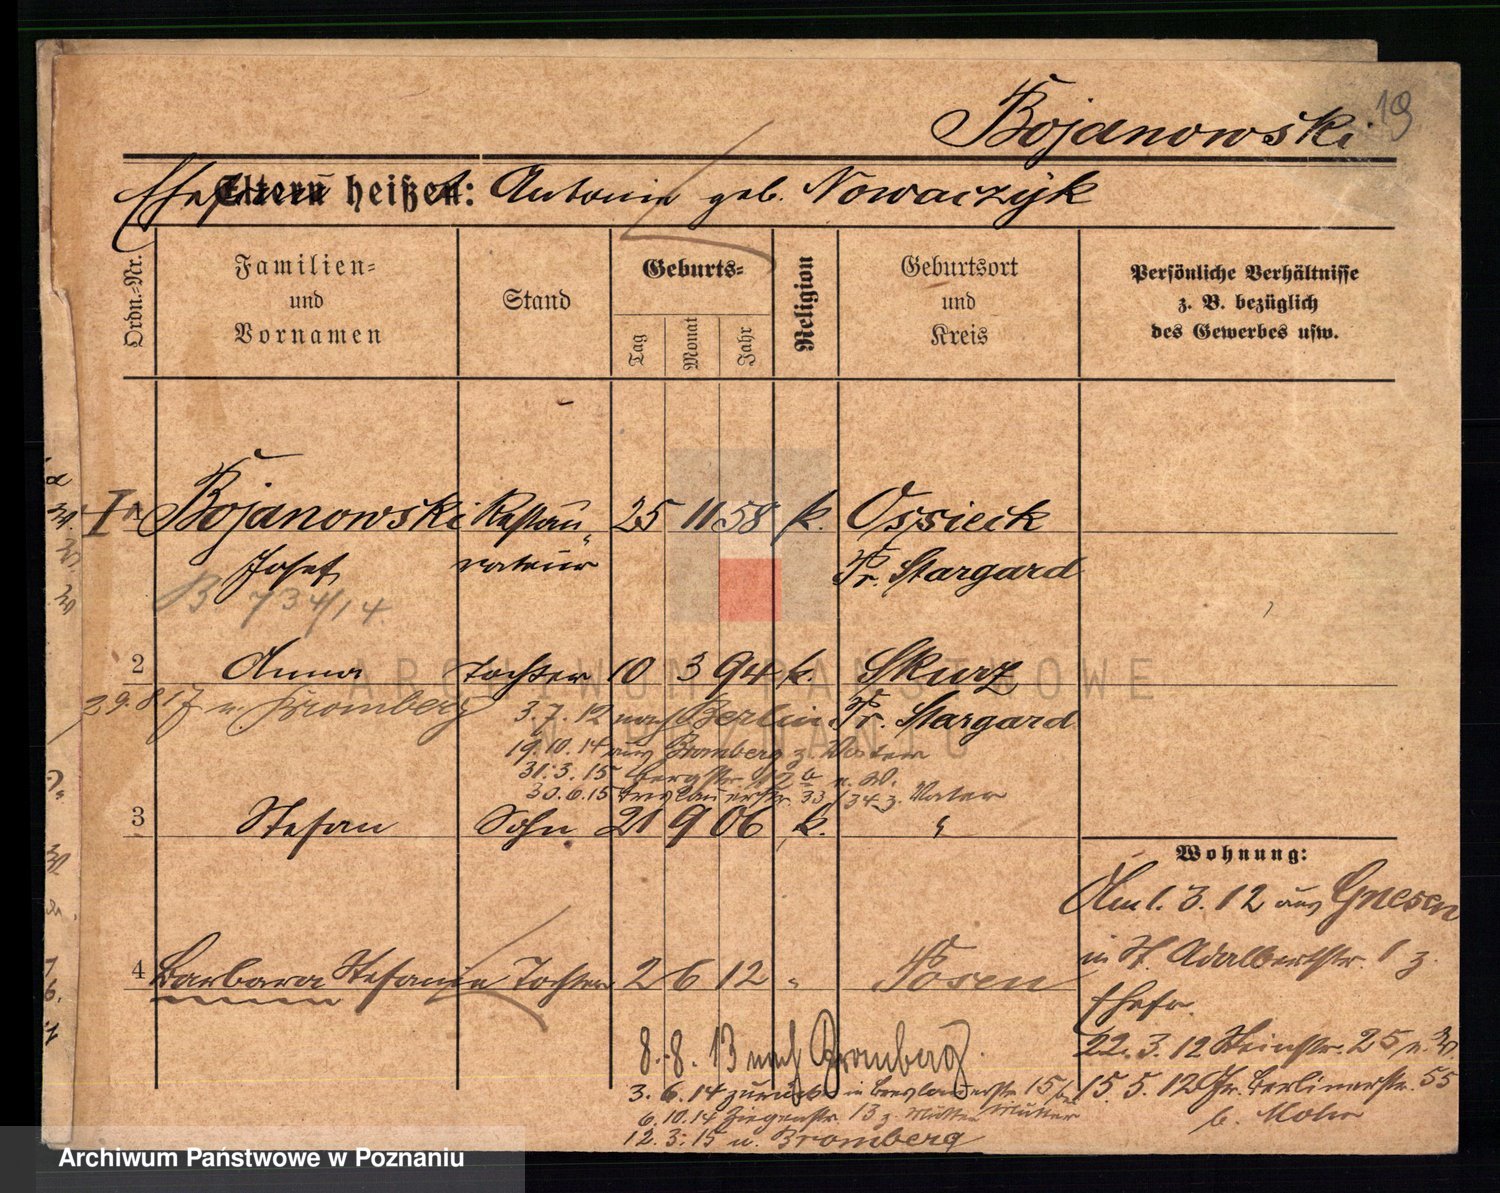 19
Bojanowski
Ehefrau Eltern heißen: Antonie geb. Nowaczyk
Ordn.-Nr.
Familien-
und
Vornamen
Stand
Geburts-
Tag
Monat
Jahr
Religion
Geburtsort
und
Kreis
Persönliche Verhältnisse
z. B. bezüglich
des Gewerbes usw.
I Bojanowski Restau- 25 11 58 k. Ossieck
Josef rateur Pr. Stargard
B. 734/14.
2 Anna Tochter 10 3 94 k. Skurz
29.8.17 n. Bromberg
Pr. Stargard
3.7.12 nach Berlin
19.10.14 aus Bromberg z. Vater
31.3.15 Bergstr. 12a n. W.
30.6.15 Breslauerstr. 33/34 z. Vater
3 Stefan Sohn 21 9 06 k. "
4 Barbara Stefanie Tochter 2 6 12 " Posen
8.8.13 nach Bromberg.
3.6.14 zurück in Breslauerstr. 15
6.10.14 Ziegenstr. 13 z. Mutter
12.3.15 n. Bromberg
Wohnung:
Am 1.3.12 aus Gnesen
in St. Adalbertstr. 1 z.
Ehefr.
22.3.12 Steinstr. 25 n. W.
15.5.12 Gr. Berlinerstr. 55
b. Mohr
ARCHIWUM PAŃSTWOWE
W POZNANIU
Archiwum Państwowe w Poznaniu